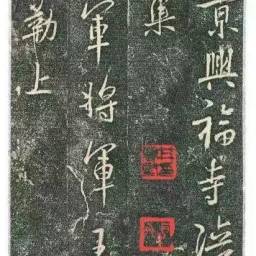 京興福寺
集
軍將軍王
勒上